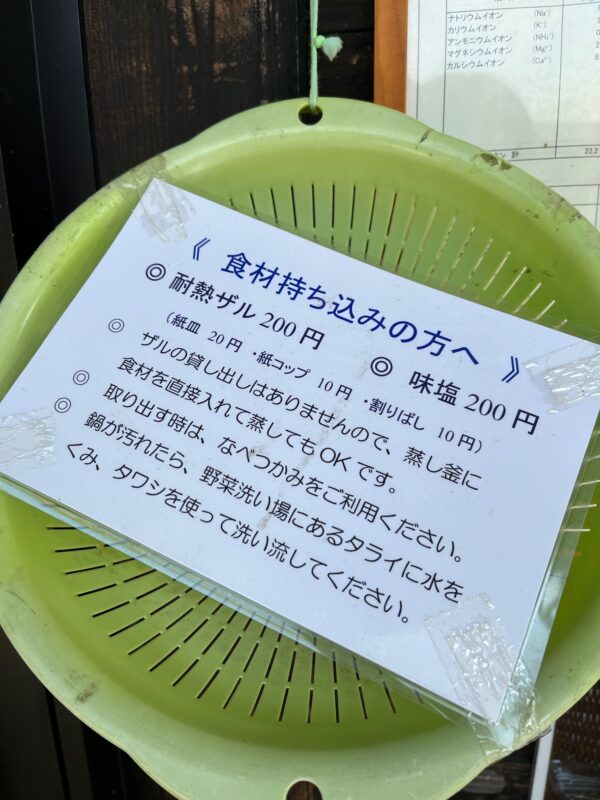 ナトリウムイオン (Na⁺)
カリウムイオン (K⁺)
アンモニウムイオン (NH₄⁺)
マグネシウムイオン (Mg²⁺)
カルシウムイオン (Ca²⁺)
計 22.2
《 食材持ち込みの方へ 》
◎ 耐熱ザル 200 円 ◎ 味塩 200 円
（紙皿 20 円 ・紙コップ 10 円 ・割りばし 10 円）
◎ ザルの貸し出しはありませんので、蒸し釜に
食材を直接入れて蒸しても OK です。
◎ 取り出す時は、なべつかみをご利用ください。
◎ 鍋が汚れたら、野菜洗い場にあるタライに水を
くみ、タワシを使って洗い流してください。